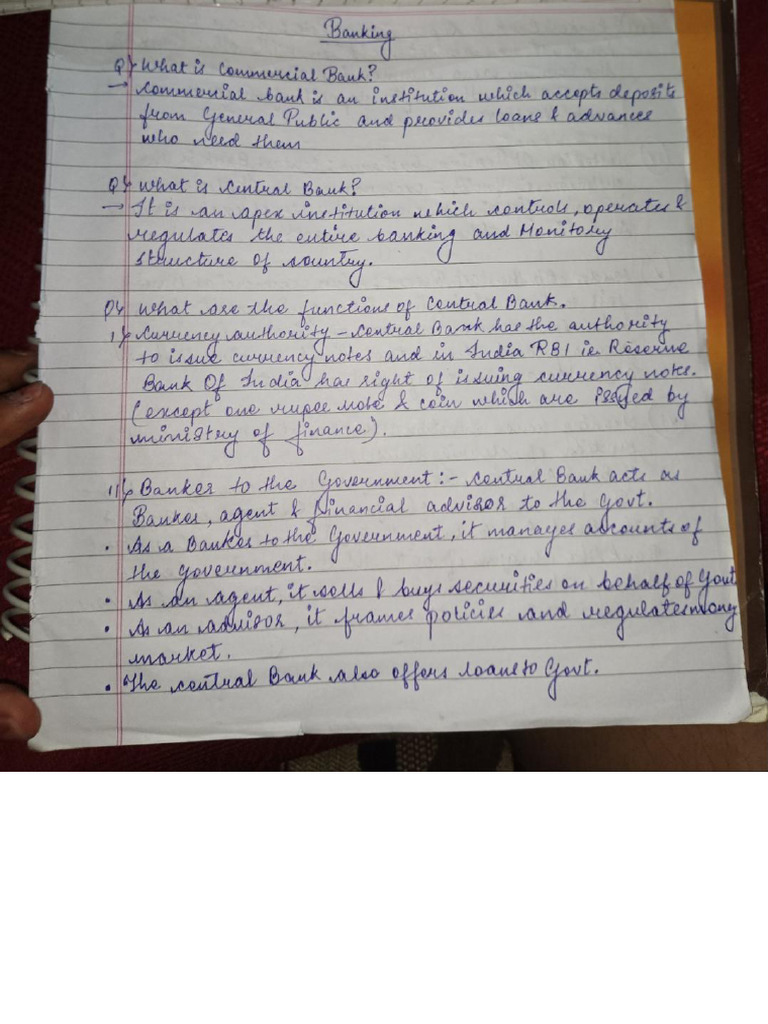 Banking
Q) What is Commercial Bank?
→ Commercial bank is an institution which accepts deposits
from General Public and provides loans & advances
who need them
Q) What is Central Bank?
→ It is an apex institution which controls, operates &
regulates the entire banking and Monitory
structure of country.
Q) What are the functions of Central Bank.
1) Currency authority - Central Bank has the authority
to issue currency notes and in India RBI ie Reserve
Bank Of India has right of issuing currency notes.
(except one rupee note & coin which are issued by
ministry of finance).
11) Banker to the Government :- Central Bank acts as
Banker, agent & financial advisor to the Govt.
• As a Banker to the Government, it manages accounts of
the government.
• As an agent, it sells & buys securities on behalf of Govt
• As an advisor, it frames policies and regulates mony
market.
• The central Bank also offers loans to Govt.